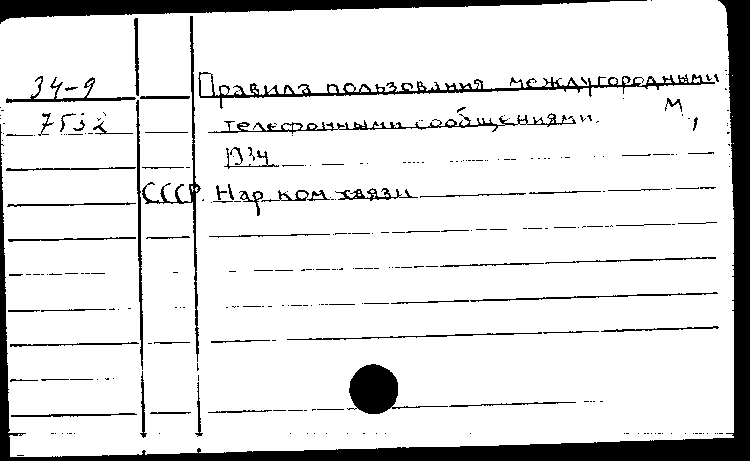 34-9 Правила пользования междугородными
7532 телефонными сообщениями. М.,
1934
СССР. Нар. ком. связи